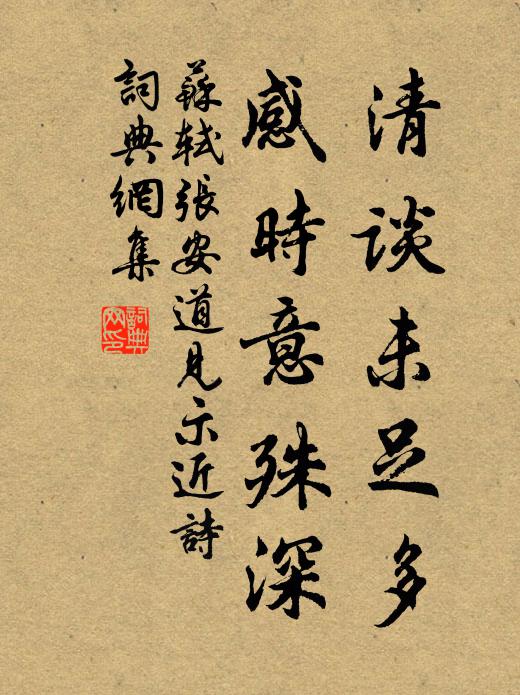 清談未足多
感時意殊深
蘇軾張安道見示近詩
詞典網集
詞典網印